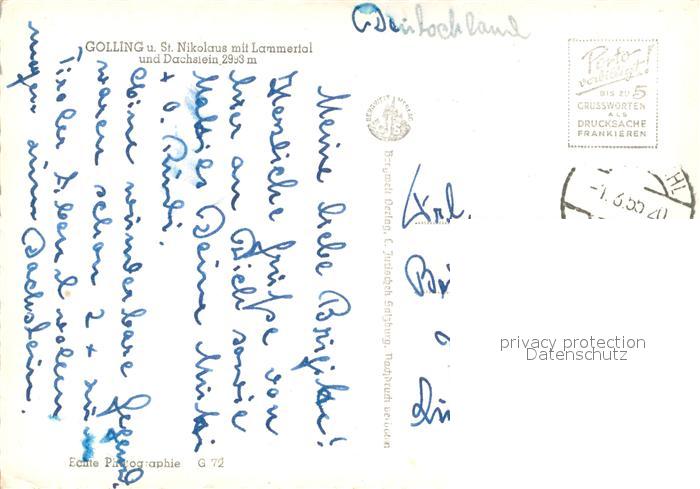 Deutschland
GOLLING u. St. Nikolaus mit Lammertal
und Dachstein, 2993 m
Porto
verbilligt!
BIS ZU 5
GRUSSWORTEN
ALS
DRUCKSACHE
FRANKIEREN
-1.3.55 20
Meine liebe Brigitte!
Herzliche Grüße von
hier an Dich sowie
Deine Mutti
+ O. Rudi.
Eine wunderbare Gegend,
waren schon 2 x zum
Tiroler Abend wollen
morgen zum Dachstein.
Bergwelt Verlag, C. Jurischek Salzburg, Nachdruck verboten
Frl.
Echte Photographie G 72
privacy protection
Datenschutz